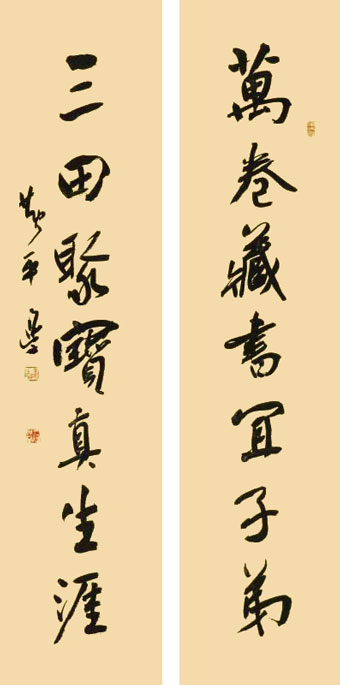 萬卷藏書宜子弟
三田聚寶真生涯